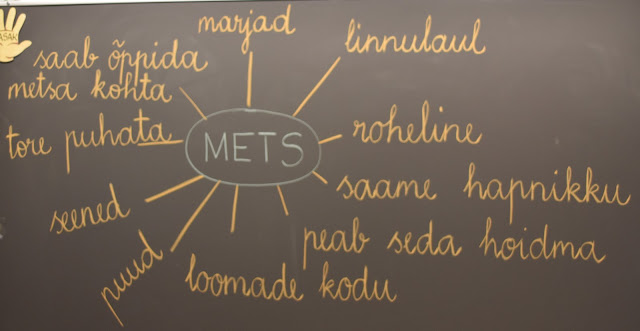 marjad
linnulaul
saab õppida
metsa kohta
tore puhata
METS
roheline
saame hapnikku
seened
peab seda hoidma
puud
loomade kodu